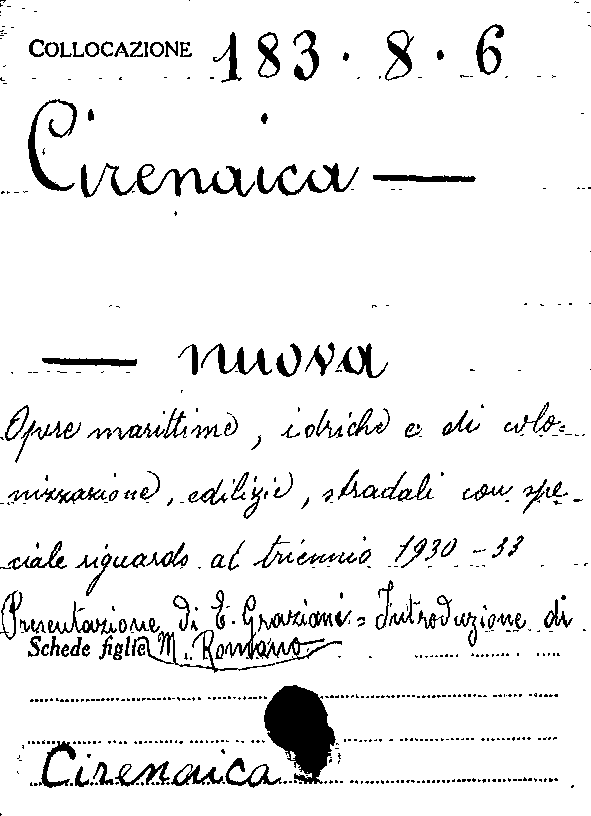 COLLOCAZIONE 183. 8. 6
Cirenaica —
— nuova
Opere marittime, idriche e di colo=
nizzazione, edilizie, stradali con spe-
ciale riguardo al triennio 1930-33
Presentazione di E. Graziani = Introduzione di
Schede figlie M. Romano
Cirenaica